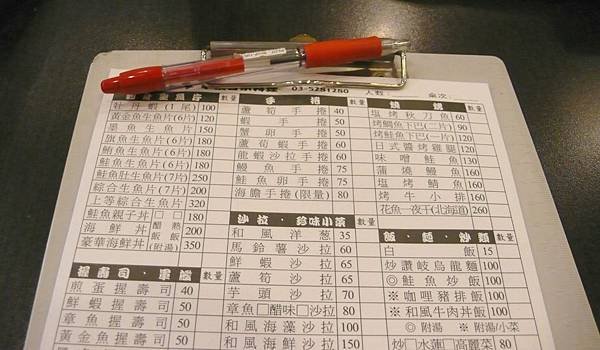 03-5281280
人數： 桌次：
生魚片 數量
牡丹蝦(1尾) 100
黃金魚生魚片(6片) 120
墨魚生魚片 150
旗魚生魚片(6片) 180
鮪魚生魚片(6片) 180
鮭魚生魚片(7片) 180
鮭魚肚生魚片(7片) 250
綜合生魚片(7片) 200
上等綜合生魚片 320
鮭魚親子丼 □□ 180
海鮮丼 醋熟 200
豪華海鮮丼 飯飯(附湯) 350
握壽司・軍艦 數量
煎蛋握壽司 40
鮮蝦握壽司 50
章魚握壽司 50
黃金魚握壽司 50
手捲 數量
蘆筍手捲 40
蝦手捲 50
蟹卵手捲 50
蘆筍蝦手捲 60
龍蝦沙拉手捲 60
鰻魚手捲 75
鮭魚卵手捲 75
海膽手捲(限量) 80
沙拉・珍味小菜 數量
和風洋蔥 35
馬鈴薯沙拉 60
鮮蝦沙拉 65
蘆筍沙拉 65
芋頭沙拉 70
章魚□醋味□沙拉 100
和風海藻沙拉 100
和風海鮮沙拉 150
燒烤 數量
塩烤秋刀魚 60
烤鯛魚下巴(二片) 90
烤鮭魚下巴(一片) 120
日式醬烤雞腿 120
味噌鮭魚 130
蒲燒鰻魚 160
塩烤鯖魚 160
烤牛小排 160
花魚一夜干(北海道) 260
飯・麵・炒類 數量
白飯 15
炒讚岐烏龍麵 100
◎鮭魚炒飯 100
※咖哩豬排飯 100
※和風牛肉丼飯 100
◎附湯 ※附湯/小菜
炒□水蓮□高麗菜 80